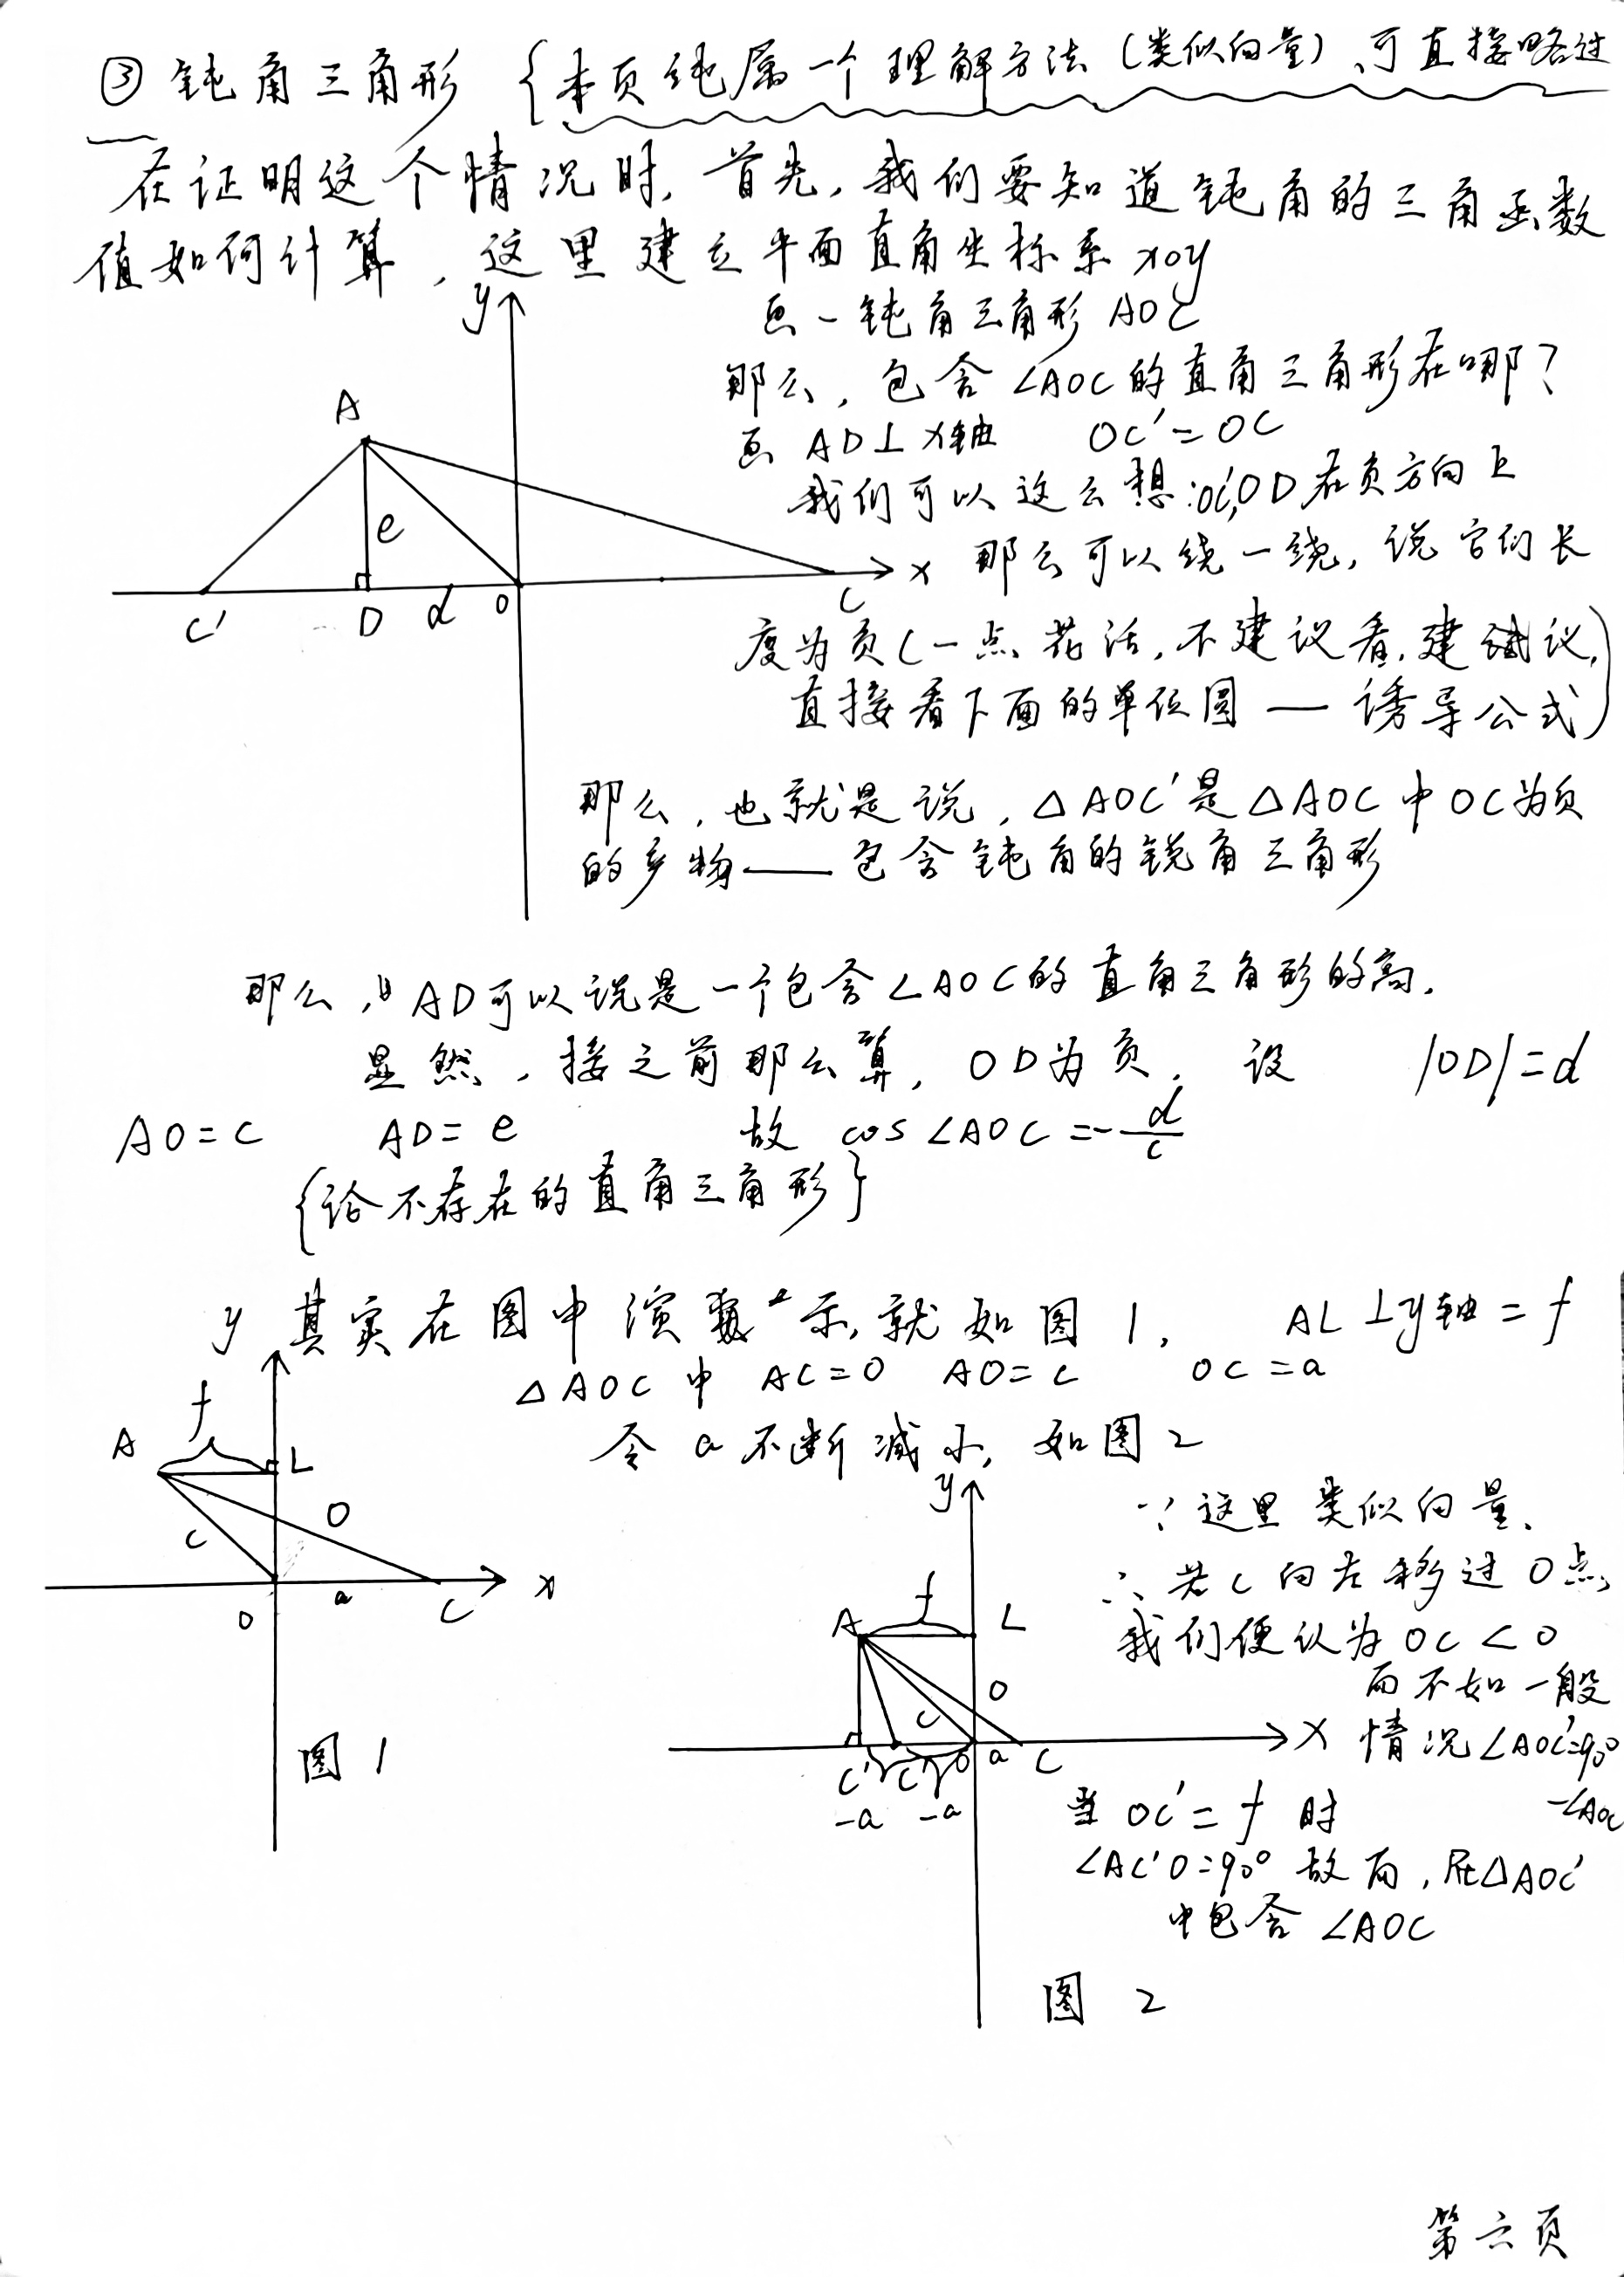 ③ 钝角三角形 {本页纯属一个理解方法(类似向量)、可直接略过
在证明这个情况时,首先,我们要知道钝角的三角函数
值如何计算,这里建立平面直角坐标系xoy
y
画一钝角三角形AOC
那么,包含∠AOC的直角三角形在哪?
A
画AD⊥x轴 OC'=OC
我们可以这么想:OC',OD在负方向上
e
x
那么可以绕一绕,说它们长
C' D d O C
度为负(一点花活,不建议看,建议,
直接看下面的单位圆——诱导公式)
那么,也就是说,△AOC'是△AOC中OC为负
的产物——包含钝角的锐角三角形
那么,AD可以说是一个包含∠AOC的直角三角形的高.
显然,按之前那么算,OD为负,设 |OD|=d
AO=c AD=e 故 cos∠AOC=-d/c
{论不存在的直角三角形}
y 其实在图中演示,就如图1, AL⊥y轴=f
△AOC中 AC=o AO=c OC=a
f
A L
令a不断减小,如图2
y
o
c
∵这里类似向量、
x
O a C
∴若C向左移过O点,
f
A L
我们便认为OC<0
而不如一般
o
c
图1
x
情况∠AOC'=90°
-∠AOC
C' C' O a C
-a -a
当OC'=f时
∠AC'O=90°故而,Rt△AOC'
中包含∠AOC
图2
第六页